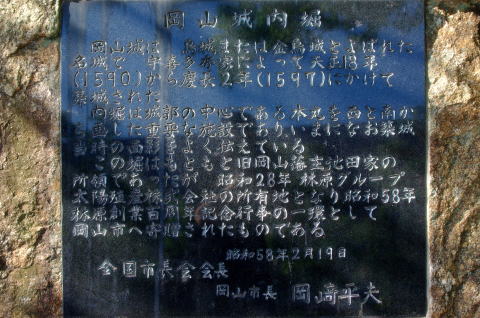 岡山城内堀
岡山城は 烏城または金烏城とよばれた
名城で 宇喜多秀家によって天正18年
(1590)から慶長2年(1597)にかけて
築城された
内堀は城郭の中心である本丸を西と南か
ら画した重要な施設でありいまになお築城
当時の面影をよく伝えている
このお堀はもと旧岡山藩主池田家の
所領であったが 昭和28年 林原グループ
太陽殖産株式会社の所有地となり昭和58年
林原創業百周年記念行事の一環として
岡山市へ寄贈されたものである
昭和58年2月19日
全国市長会会長
岡山市長 岡﨑平夫